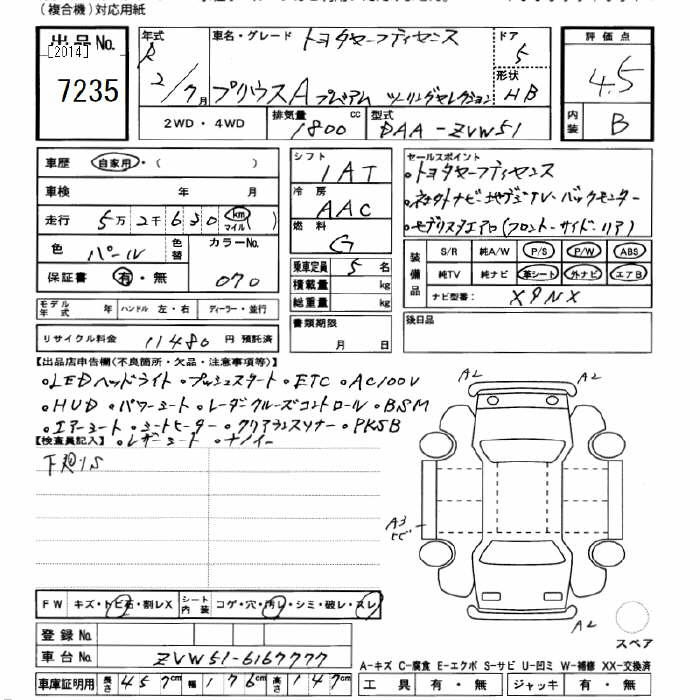 (複合機)対応用紙
出品No. 年式 車名・グレード トヨタセーフティセンス ドア 5 評価点
[2014] R
7235 2/7月 プリウスA プレミアム ツーリングセレクション 形状 HB 4.5
2WD・4WD 排気量 1800 cc 型式 DAA-ZVW51 内装 B
車歴 自家用・( ) シフト 1AT セールスポイント
車検 年 月 冷房 AAC ・トヨタセーフティセンス
走行 5万2千630 km マイル 燃料 G ・社外ナビ地デジTV・バックモニター
色 パール 色替 カラーNo. 070 ・モデリスタエアロ(フロント・サイド・リア)
保証書 有・無 乗車定員 5名
装備品 S/R 純A/W P/S P/W ABS
純TV 純ナビ 革シート 外ナビ エアB
積載量 kg ナビ型番: X9NX
総重量 kg
モデル年式 年 ハンドル 左・右 ディーラー・並行 書類期限 月 日 後日品
リサイクル料金 11480 円 預託済
【出品店申告欄(不良箇所・欠品・注意事項等)】
・LEDヘッドライト・プッシュスタート・ETC・AC100V
・HUD・パワーシート・レーダクルーズコントロール・BSM
・エアーシート・シートヒーター・クリアランスソナー・PKSB
【検査員記入】・レザーシート・ナノイー
下廻りS
A2 A2
A3
トビ
A2
FW キズ・トビ石・割レX シート内装 コゲ・穴・汚レ・シミ・破レ・スレ
登録No. スペア
車台No. ZVW51-6167777 A-キズ C-腐食 E-エクボ S-サビ U-凹ミ W-補修 XX-交換済
車庫証明用 長さ 457cm 幅 176cm 高さ 147cm 工具 有・無 ジャッキ 有・無